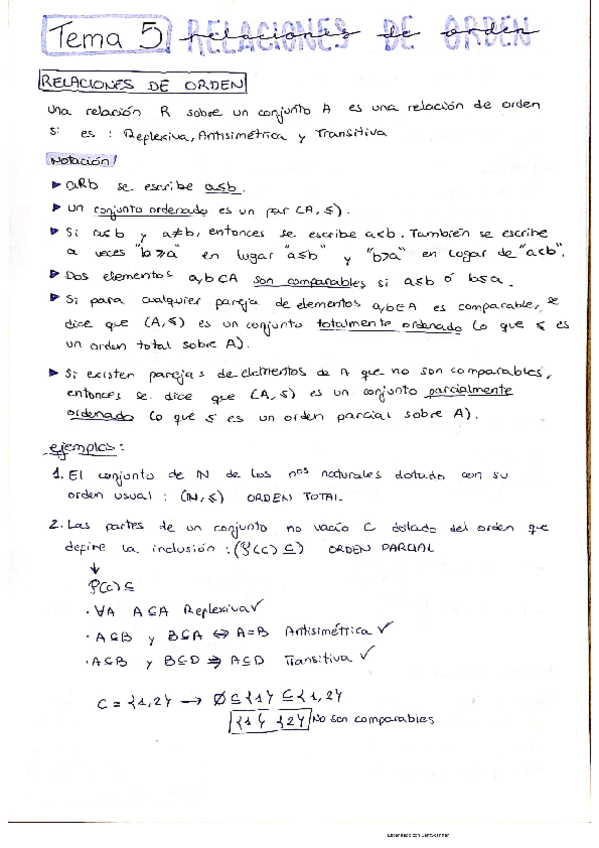 Tema 5 RELACIONES DE ORDEN
relaciones de orden
RELACIONES DE ORDEN
Una relación R sobre un conjunto A es una relación de orden
si es : Reflexiva, Antisimétrica y Transitiva
Notación
▶ aRb se escribe a≤b.
▶ Un conjunto ordenado es un par (A, ≤).
▶ Si a≤b y a≠b, entonces se escribe a<b. También se escribe
a veces "b≥a" en lugar "a≤b" y "b>a" en lugar de "a<b".
▶ Dos elementos a,b∈A son comparables si a≤b ó b≤a.
▶ Si para cualquier pareja de elementos a,b∈A es comparable, se
dice que (A,≤) es un conjunto totalmente ordenado (o que ≤ es
un orden total sobre A).
▶ Si existen parejas de elementos de A que no son comparables,
entonces se dice que (A,≤) es un conjunto parcialmente
ordenado (o que ≤ es un orden parcial sobre A).
ejemplos:
1. El conjunto de ℕ de los nos naturales dotado con su
orden usual : (ℕ,≤) ORDEN TOTAL
2. Las partes de un conjunto no vacío C dotado del orden que
define la inclusión : (P(C) ⊆) ORDEN PARCIAL
↓
P(C) ⊆
· ∀A A⊆A Reflexiva ✓
· A⊆B y B⊆A ⇔ A=B Antisimétrica ✓
· A⊆B y B⊆D ⇒ A⊆D Transitiva ✓
C = {1,2} → Ø ⊆ {1} ⊆ {1,2}
{1} {2} No son comparables